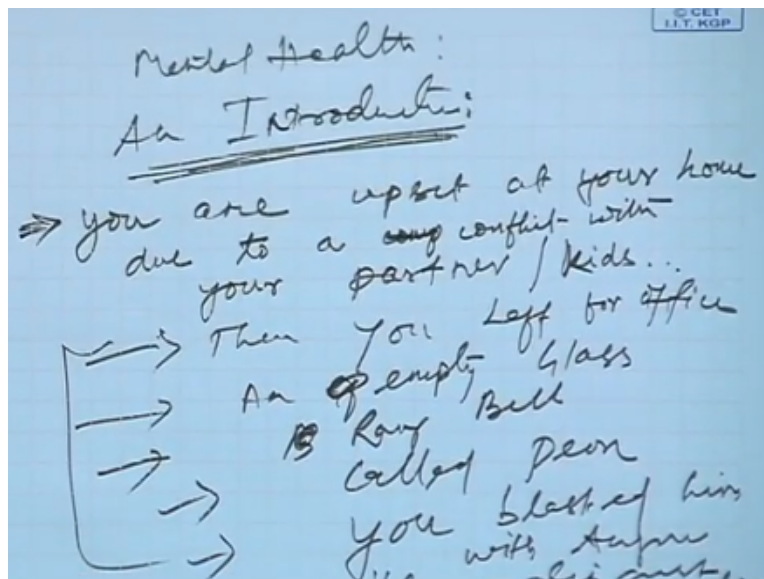 © CET
I.I.T. KGP
Mental Health:
An Introduction:
⇒ you are upset at your home
due to a conflict with
your partner / kids...
→ Then you Left for office
→ An empty Glass
→ Rang Bell
→ Called Peon
→ you blasted him
with